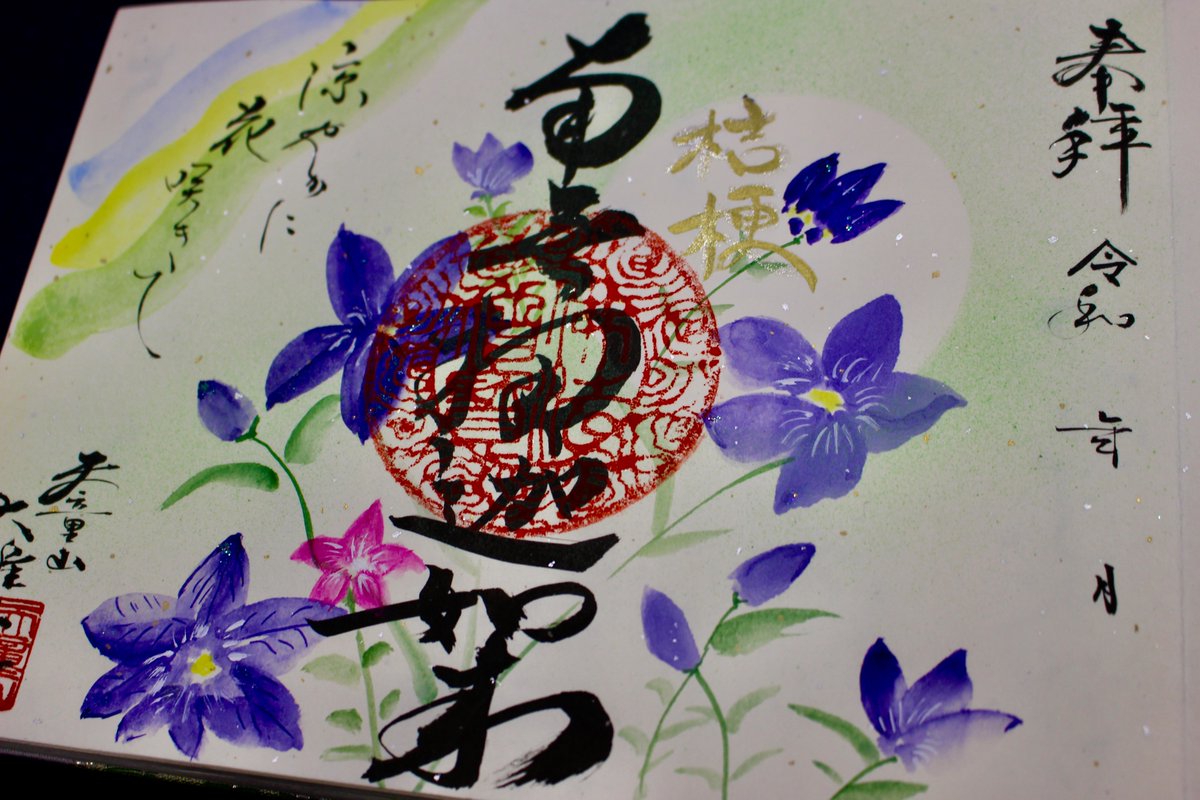 奉拝 令和 年 月
桔梗
南無釈迦如来
涼やかに
花咲きいて